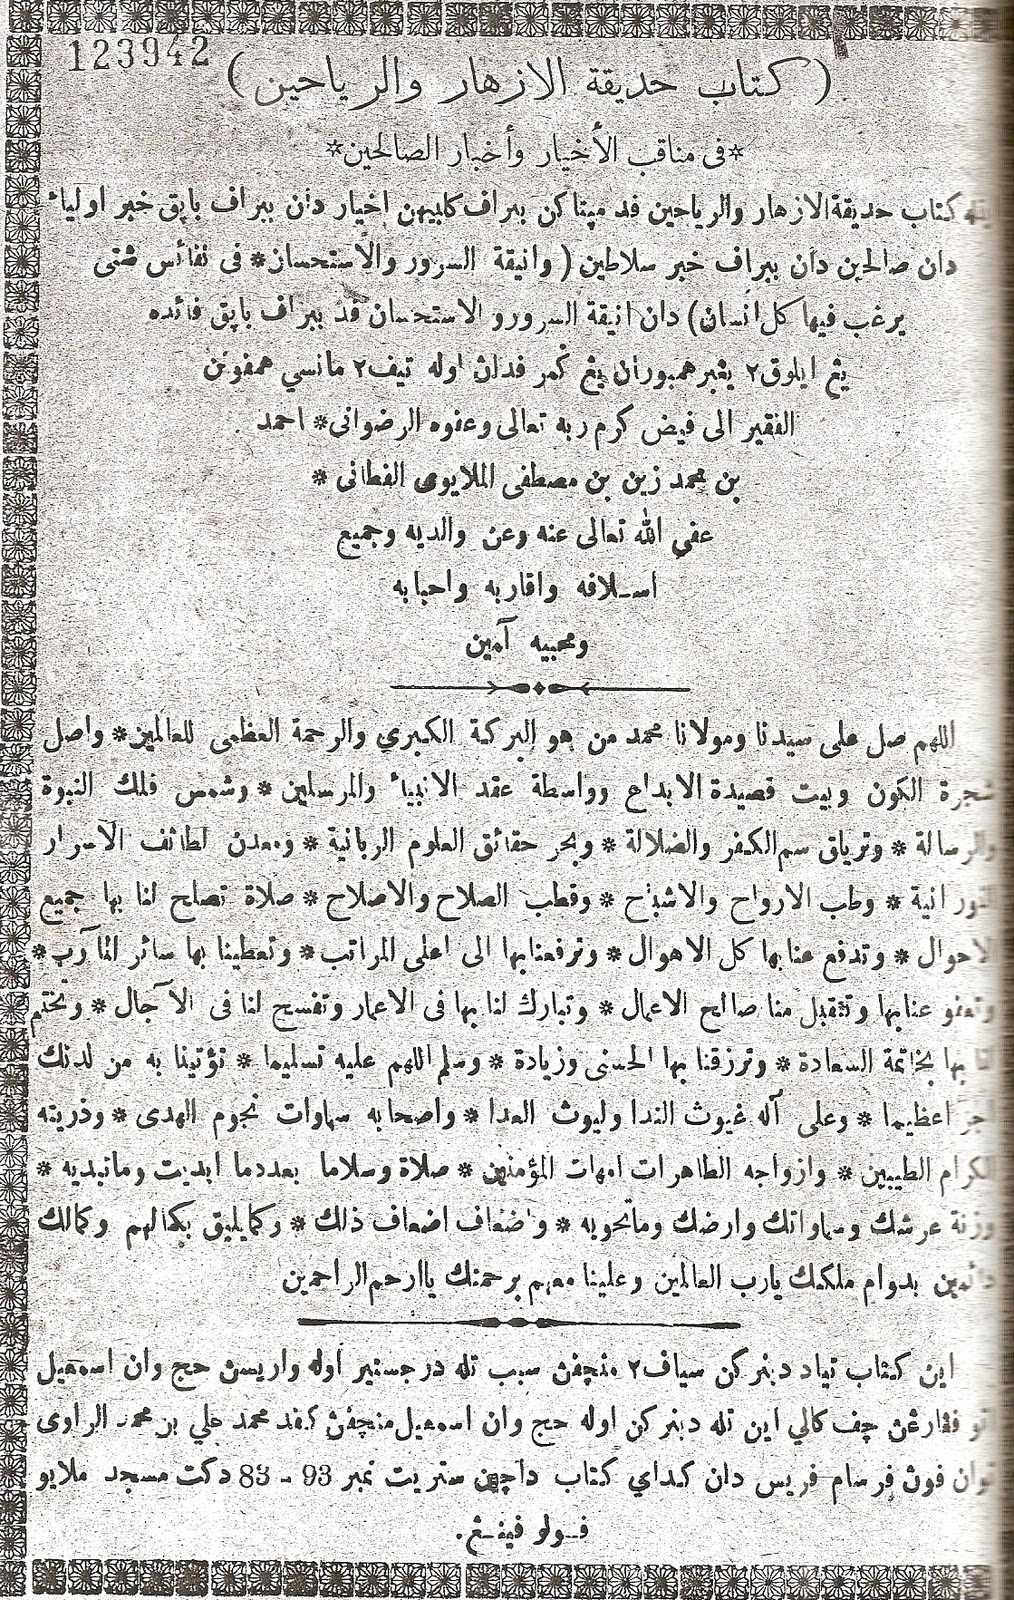 123942
( كتاب حديقة الازهار والرياحين )
*فى مناقب الأخيار وأخبار الصالحين*
كتاب حديقة الازهار والرياحين فد مپتاكن ببراف كلبيهن اخيار دان ببراف باڽق خبر اولياء
دان صالحين دان ببراف خبر سلاطين ( وانيقة السرور والاستحسان* فى نفائس شتى
يرغب فيها كل انسان) دان انيقة السرور والاستحسان فد ببراف باڽق فائده
يڠ ايلوق٢ هيبوران يڠ ڬمر فدان اوله تيف٢ مانسي همفونن
الفقير الى فيض كرم ربه تعالى وعفوه الرضوانى* احمد
بن محمد زين بن مصطفى الملايوى الفطانى *
عفي الله تعالى عنه وعن والديه وجميع
اسـلافه واقاربه واحبابه
ومحبيه آمين
اللهم صل على سيدنا ومولانا محمد من هو البركة الكبري والرحمة العظمى للعالمين* واصل
شجرة الكون وبيت قصيدة الابداع وواسطة عقد الانبياء والمرسلين * وشمس فلك النبوة
والرسالة * وترياق سم الكفر والضلالة * وبحر حقائق العلوم الربانية * ومعدن لطائف الاسرار
النورانية * وطب الارواح والاشباح * وقطب الصلاح والاصلاح * صلاة تصلح لنا بها جميع
الاحوال * وتدفع عنا بها كل الاهوال * وترفعنا بها الى اعلى المراتب * وتعطينا بها سائر المآرب *
وتعفو عنا بها وتتقبل منا صالح الاعمال * وتبارك لنا بها فى الاعمار وتفسح لنا فى الآجال * وتختم
لنا بها بخاتمة السعادة * وترزقنا بها الحسنى وزيادة * وسلم اللهم عليه تسليما * تؤتينا به من لدنك
اجرا عظيما * وعلى آله غيوث الندا وليوث العدا * واصحابه سماوات نجوم الهدى * وذريته
الكرام الطيبين * وازواجه الطاهرات امهات المؤمنين * صلاة وسلاما بعدد ما ابديت وما تبديه *
وزنة عرشك وسماواتك وارضك وما تحويه * واضعاف اضعاف ذلك * وكما يليق بكمالهم وكمالك
دائمين بدوام ملكك يارب العالمين وعلينا معهم برحمتك ياارحم الراحمين
اين كتاب تياد دبنركن سياف٢ منچفڽ سبب تله درجستير اوله واريسڽ حج وان اسمعيل
چف كالي اين تله دبنركن اوله حج وان اسمعيل منچفڽ كفد محمد علي بن محمد الراوى
توان فوڽ فرسام فريس دان كداي كتاب داچين ستريت نمبر 93 - 83 دكت مسجد ملايو
فـولو فينـڠ.